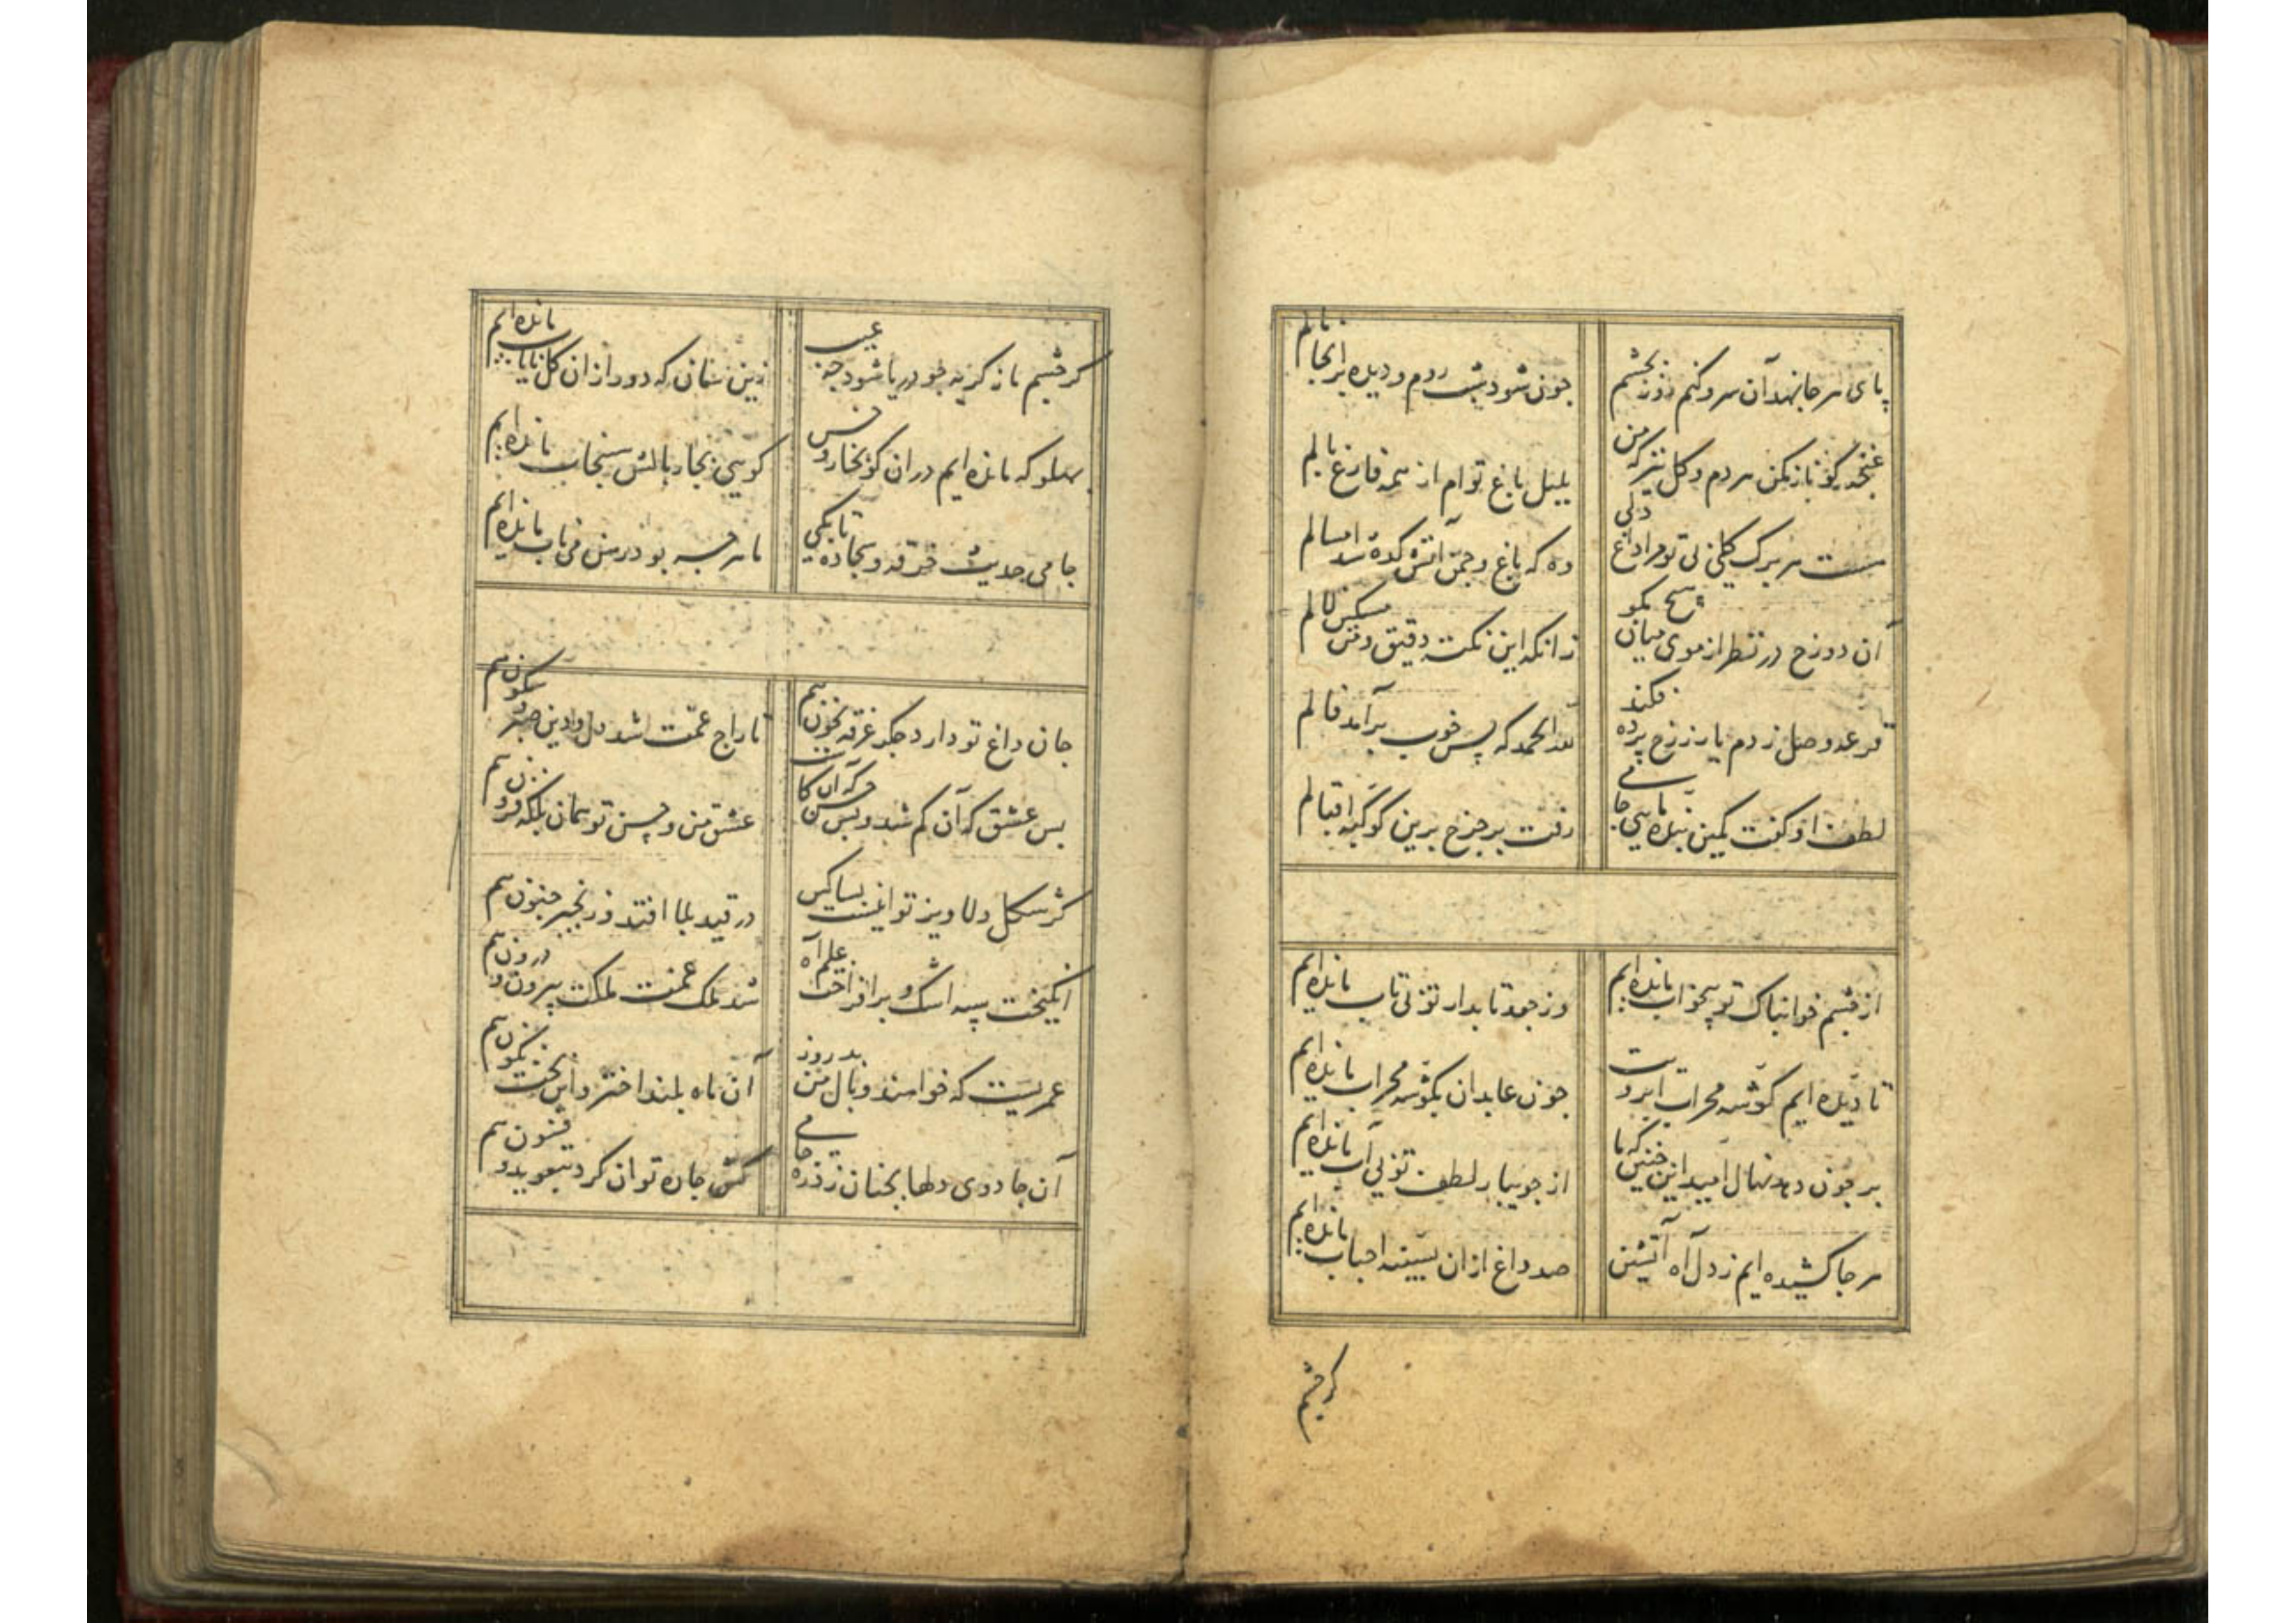 پای هر جا نهد آن سرو کنم روز بچشم
چون شود شب روم و دیده بر انجا مالم
غنچه گو ناز مکن هر دم و گل نیز که من
بلبل باغ توام از همه فارغ بالم
هست هر برگ گلی بی تو مرا داغ دلی
وه که باغ و چمن آتشکده شد امسالم
آن دو رخ در نظر از موی میان هیچ مگو
زانکه این نکته دقیق و من مسکین لالم
قرعه وصل زدم یار ز رخ پرده فکند
لله الحمد که بس خوب برآمد فالم
لطف او گفت کمین بنده مایی جامی
رفت بر چرخ برین کوکبه اقبالم
از چشم خوابناک تو بیخواب مانده ایم
وز جعد تابدار تو بی تاب مانده ایم
تا دیده ایم گوشه محراب ابرویت
چون عابدان بگوشه محراب مانده ایم
بر چون دهد نهال امید این چنین که ما
از جویبار لطف تو بی آب مانده ایم
هر جا کشیده ایم ز دل آه آتشین
صد داغ از آن بسینه احباب مانده ایم
گر چشم
گر چشم ما ز گریه چو دریا شود چه عیب
زین سان که دور از آن گل نایاب مانده ایم
پهلو که مانده ایم در آن کو بخار و خس
گویی بجا ببالش سنجاب مانده ایم
جامی حدیث خرقه و سجاده تا بکی
ما هر چه بود در رهن می ناب مانده ایم
جان داغ تو دارد جگر غرقه بخون هم
تاراج غمت شد دل و دین صبر و سکون هم
بس عشق که آن کم شد و بس حسن که آن کاست
عشق من و حسن تو همان بلکه فزون هم
گر شکل دلاویز تو اینست بسا کس
در قید بلا افتد و زنجیر جنون هم
انگیخت سپه اشک و برافراخت علم آه
شد ملک غمت مملکت بیرون و درون هم
عمریست که خواهند وبال من بدروز
آن ماه بلند اختر و این بخت نگون هم
آن جادوی دلها بچنان زد ره جامی
کش چاره توان کرد بتعوید و فسون هم